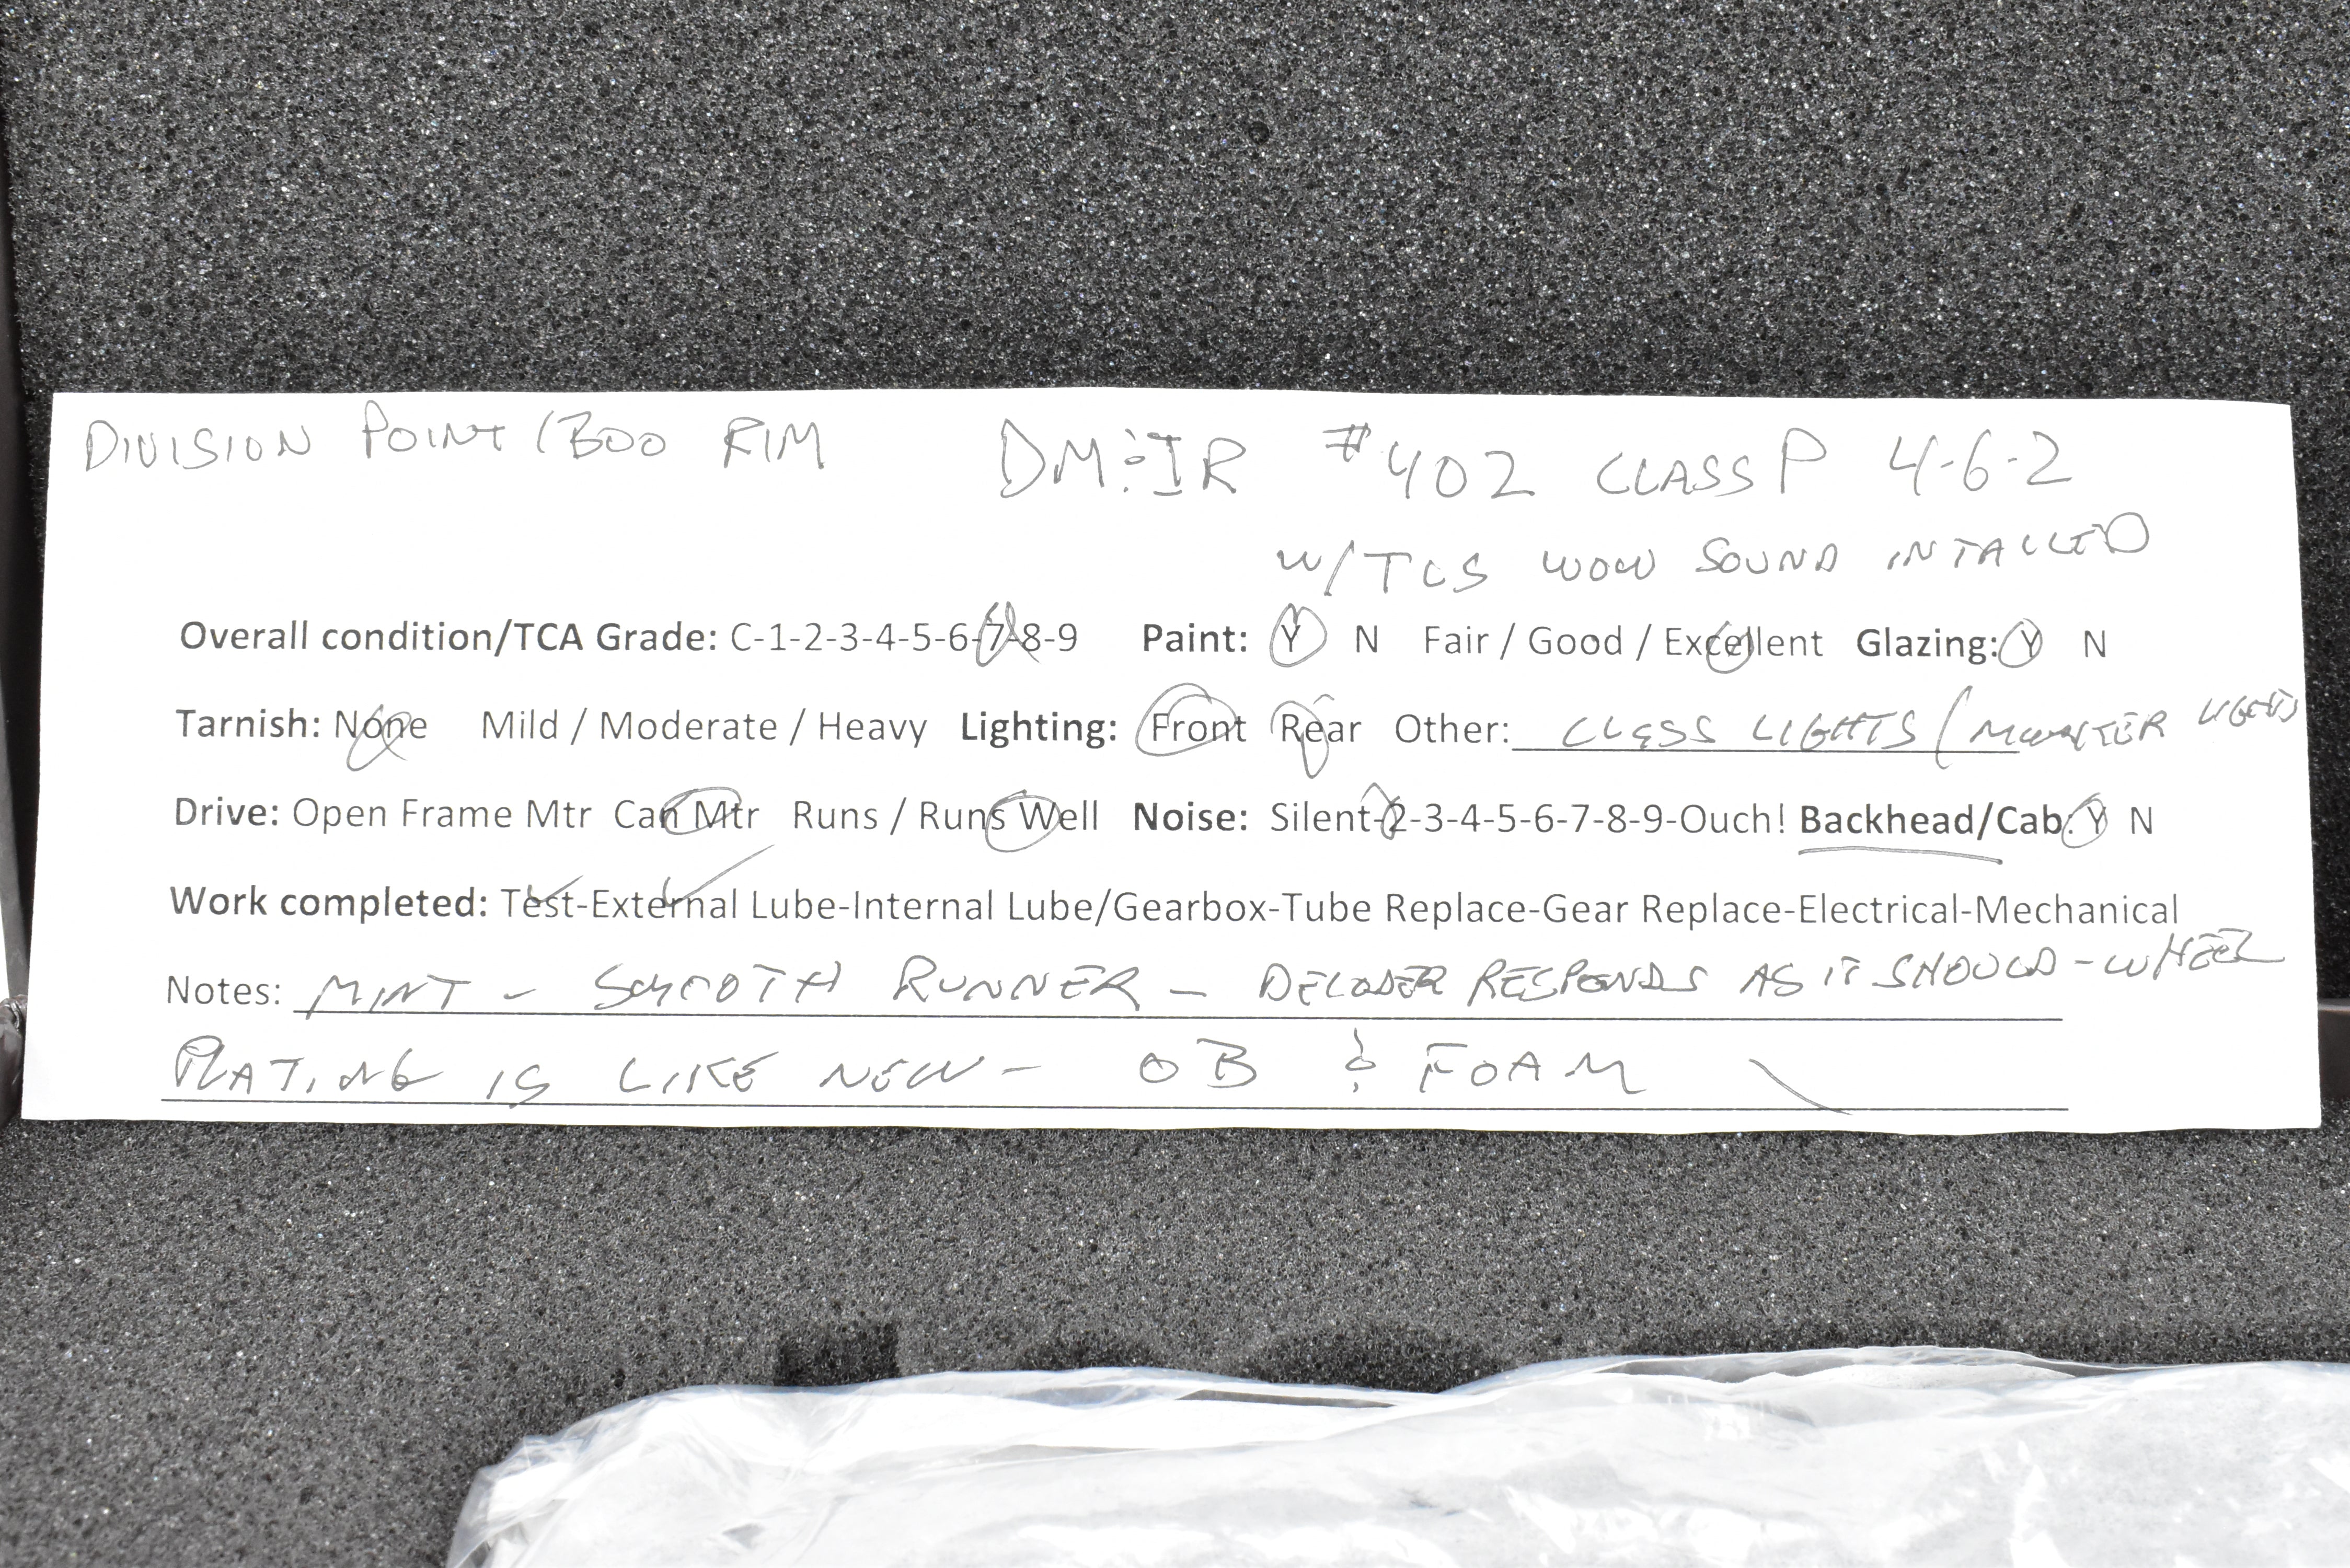 DIVISION POINT / BOO RIM DM&IR #402 CLASS P 4-6-2
W/TCS WOW SOUND INTALLED
Overall condition/TCA Grade: C-1-2-3-4-5-6-7-8-9 Paint: Y N Fair / Good / Excellent Glazing: Y N
Tarnish: None Mild / Moderate / Heavy Lighting: Front Rear Other: CLASS LIGHTS / LIGHTS
Drive: Open Frame Mtr Can Mtr Runs / Runs Well Noise: Silent-2-3-4-5-6-7-8-9-Ouch! Backhead/Cab: Y N
Work completed: Test-External Lube-Internal Lube/Gearbox-Tube Replace-Gear Replace-Electrical-Mechanical
Notes: MINT - SMOOTH RUNNER - DECODER RESPONDS AS IT SHOULD - WHEEL
PLATING IS LIKE NEW - OB & FOAM